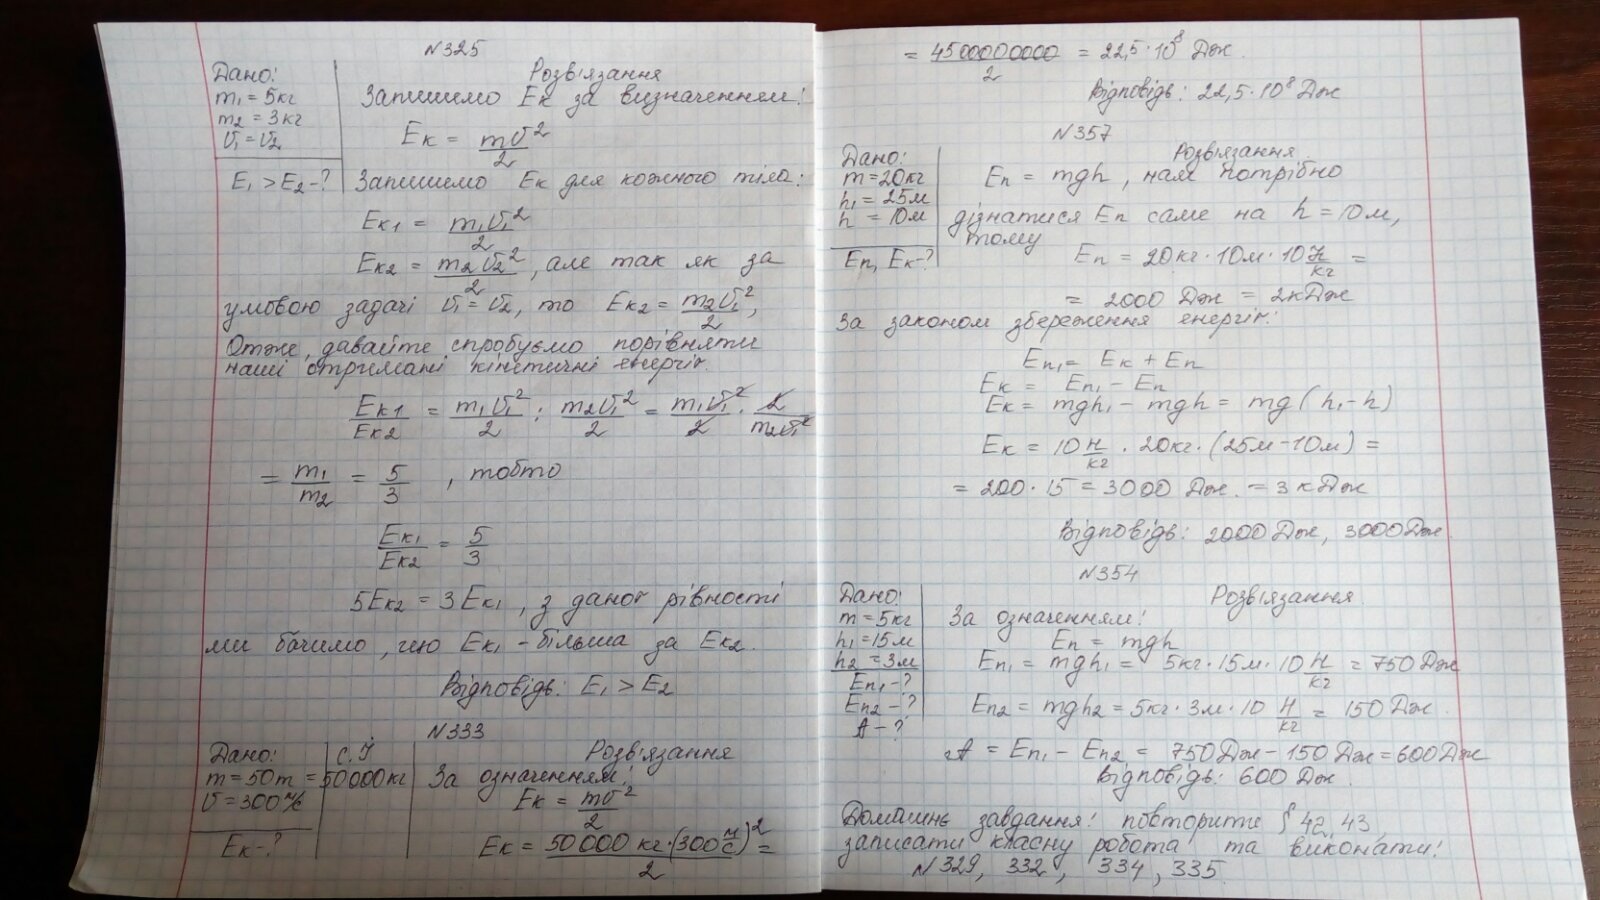 N325
Дано:
m₁ = 5кг
m₂ = 3кг
v₁ = v₂
E₁ > E₂ - ?
Розв'язання
Запишимо Eк за визначенням:
Eк = mv²/2
Запишимо Eк для кожного тіла:
Eк₁ = m₁v₁²/2
Eк₂ = m₂v₂²/2, але так як за
умовою задачі v₁ = v₂, то Eк₂ = m₂v₁²/2,
Отже, давайте спробуємо порівняти
наші отримані кінетичні енергії.
Eк₁/Eк₂ = m₁v₁²/2 : m₂v₁²/2 = m₁v₁²/2 · 2/m₂v₁²
= m₁/m₂ = 5/3, тобто
Eк₁/Eк₂ = 5/3
5Eк₂ = 3Eк₁, з даної рівності
ми бачимо, що Eк₁ - більша за Eк₂.
Відповідь: E₁ > E₂
N333
Дано:
m = 50т = 50000кг
v = 300 м/с
Eк - ?
С.І
Розв'язання
За означенням:
Eк = mv²/2
Eк = 50000 кг·(300 м/с)²/2 =
= 4500000000/2 = 22,5·10⁸ Дж.
Відповідь: 22,5·10⁸ Дж
N357
Дано:
m = 20кг
h₁ = 25м
h = 10м
Eп, Eк - ?
Розв'язання
Eп = mgh, нам потрібно
дізнатися Eп саме на h = 10м,
тому
Eп = 20кг·10м·10 Н/кг =
= 2000 Дж = 2кДж
За законом збереження енергії:
Eп₁ = Eк + Eп
Eк = Eп₁ - Eп
Eк = mgh₁ - mgh = mg(h₁-h)
Eк = 10 Н/кг · 20кг·(25м-10м) =
= 200·15 = 3000 Дж. = 3 кДж
Відповідь: 2000 Дж, 3000Дж.
N354
Дано:
m = 5кг
h₁ = 15м
h₂ = 3м
Eп₁ - ?
Eп₂ - ?
A - ?
Розв'язання
За означенням:
Eп = mgh
Eп₁ = mgh₁ = 5кг·15м·10 Н/кг = 750 Дж
Eп₂ = mgh₂ = 5кг·3м·10 Н/кг = 150 Дж.
A = Eп₁ - Eп₂ = 750Дж - 150Дж = 600Дж
Відповідь: 600 Дж.
Домашнє завдання: повторити § 42, 43
записати класну робота та виконати:
N329, 332, 334, 335.